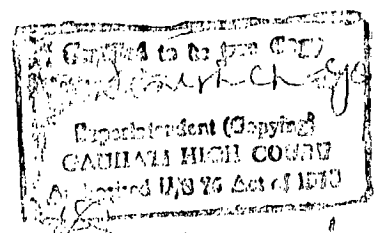 Certified to be true Copy
Superintendent (Copying)
GAUHATI HIGH COURT
Authorised U/S 76 Act of 1872